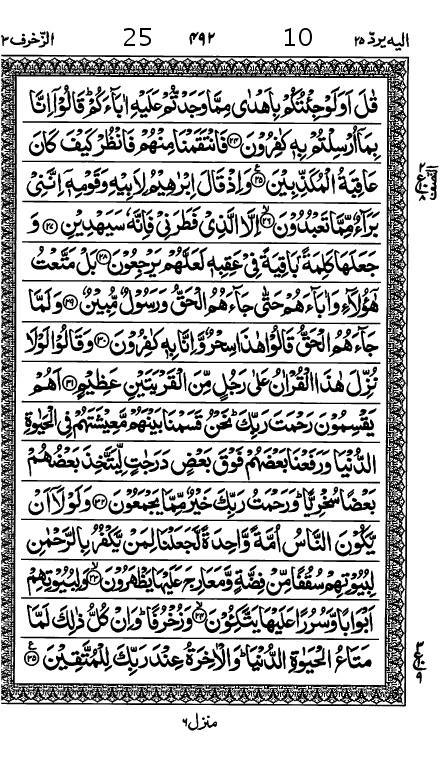 الیه یردّ ۲۵ 10 ۴۹۲ 25 الزّخرف ۴۳
قٰلَ اَوَلَوْ جِئْتُكُمْ بِاَهْدٰى مِمَّا وَجَدْتُّمْ عَلَیْهِ اٰبَآءَكُمْ ؕ قَالُوْۤا اِنَّا
بِمَاۤ اُرْسِلْتُمْ بِهٖ كٰفِرُوْنَ ﴿۲۴﴾ فَانْتَقَمْنَا مِنْهُمْ فَانْظُرْ كَیْفَ كَانَ
عَاقِبَةُ الْمُكَذِّبِیْنَ ﴿۲۵﴾ ع وَاِذْ قَالَ اِبْرٰهِیْمُ لِاَبِیْهِ وَقَوْمِهٖۤ اِنَّنِیْ
بَرَآءٌ مِّمَّا تَعْبُدُوْنَ ﴿۲۶﴾ ۙ اِلَّا الَّذِیْ فَطَرَنِیْ فَاِنَّهٗ سَیَهْدِیْنِ ﴿۲۷﴾ وَ
جَعَلَهَا كَلِمَةًۢ بَاقِیَةً فِیْ عَقِبِهٖ لَعَلَّهُمْ یَرْجِعُوْنَ ﴿۲۸﴾ بَلْ مَتَّعْتُ
هٰۤؤُلَآءِ وَاٰبَآءَهُمْ حَتّٰى جَآءَهُمُ الْحَقُّ وَرَسُوْلٌ مُّبِیْنٌ ﴿۲۹﴾ وَلَمَّا
جَآءَهُمُ الْحَقُّ قَالُوْا هٰذَا سِحْرٌ وَّاِنَّا بِهٖ كٰفِرُوْنَ ﴿۳۰﴾ وَقَالُوْا لَوْلَا
نُزِّلَ هٰذَا الْقُرْاٰنُ عَلٰى رَجُلٍ مِّنَ الْقَرْیَتَیْنِ عَظِیْمٍ ﴿۳۱﴾ اَهُمْ
یَقْسِمُوْنَ رَحْمَتَ رَبِّكَ ؕ نَحْنُ قَسَمْنَا بَیْنَهُمْ مَّعِیْشَتَهُمْ فِی الْحَیٰوةِ
الدُّنْیَا وَرَفَعْنَا بَعْضَهُمْ فَوْقَ بَعْضٍ دَرَجٰتٍ لِّیَتَّخِذَ بَعْضُهُمْ
بَعْضًا سُخْرِیًّا ؕ وَرَحْمَتُ رَبِّكَ خَیْرٌ مِّمَّا یَجْمَعُوْنَ ﴿۳۲﴾ وَلَوْلَاۤ اَنْ
یَّكُوْنَ النَّاسُ اُمَّةً وَّاحِدَةً لَّجَعَلْنَا لِمَنْ یَّكْفُرُ بِالرَّحْمٰنِ
لِبُیُوْتِهِمْ سُقُفًا مِّنْ فِضَّةٍ وَّمَعَارِجَ عَلَیْهَا یَظْهَرُوْنَ ﴿۳۳﴾ ۙ وَلِبُیُوْتِهِمْ
اَبْوَابًا وَّسُرُرًا عَلَیْهَا یَتَّكِـُٔوْنَ ﴿۳۴﴾ ۙ وَزُخْرُفًا ؕ وَاِنْ كُلُّ ذٰلِكَ لَمَّا
مَتَاعُ الْحَیٰوةِ الدُّنْیَا ؕ وَالْاٰخِرَةُ عِنْدَ رَبِّكَ لِلْمُتَّقِیْنَ ﴿۳۵﴾ ع
منزل ۶